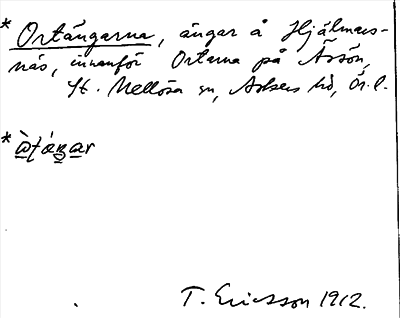 * Ortängarna, ängar å Hjälmars-
näs, innanför Ortarna på Åsön,
St. Mellösa sn, Askers hd, Ör. l.
T. Ericsson 1912.